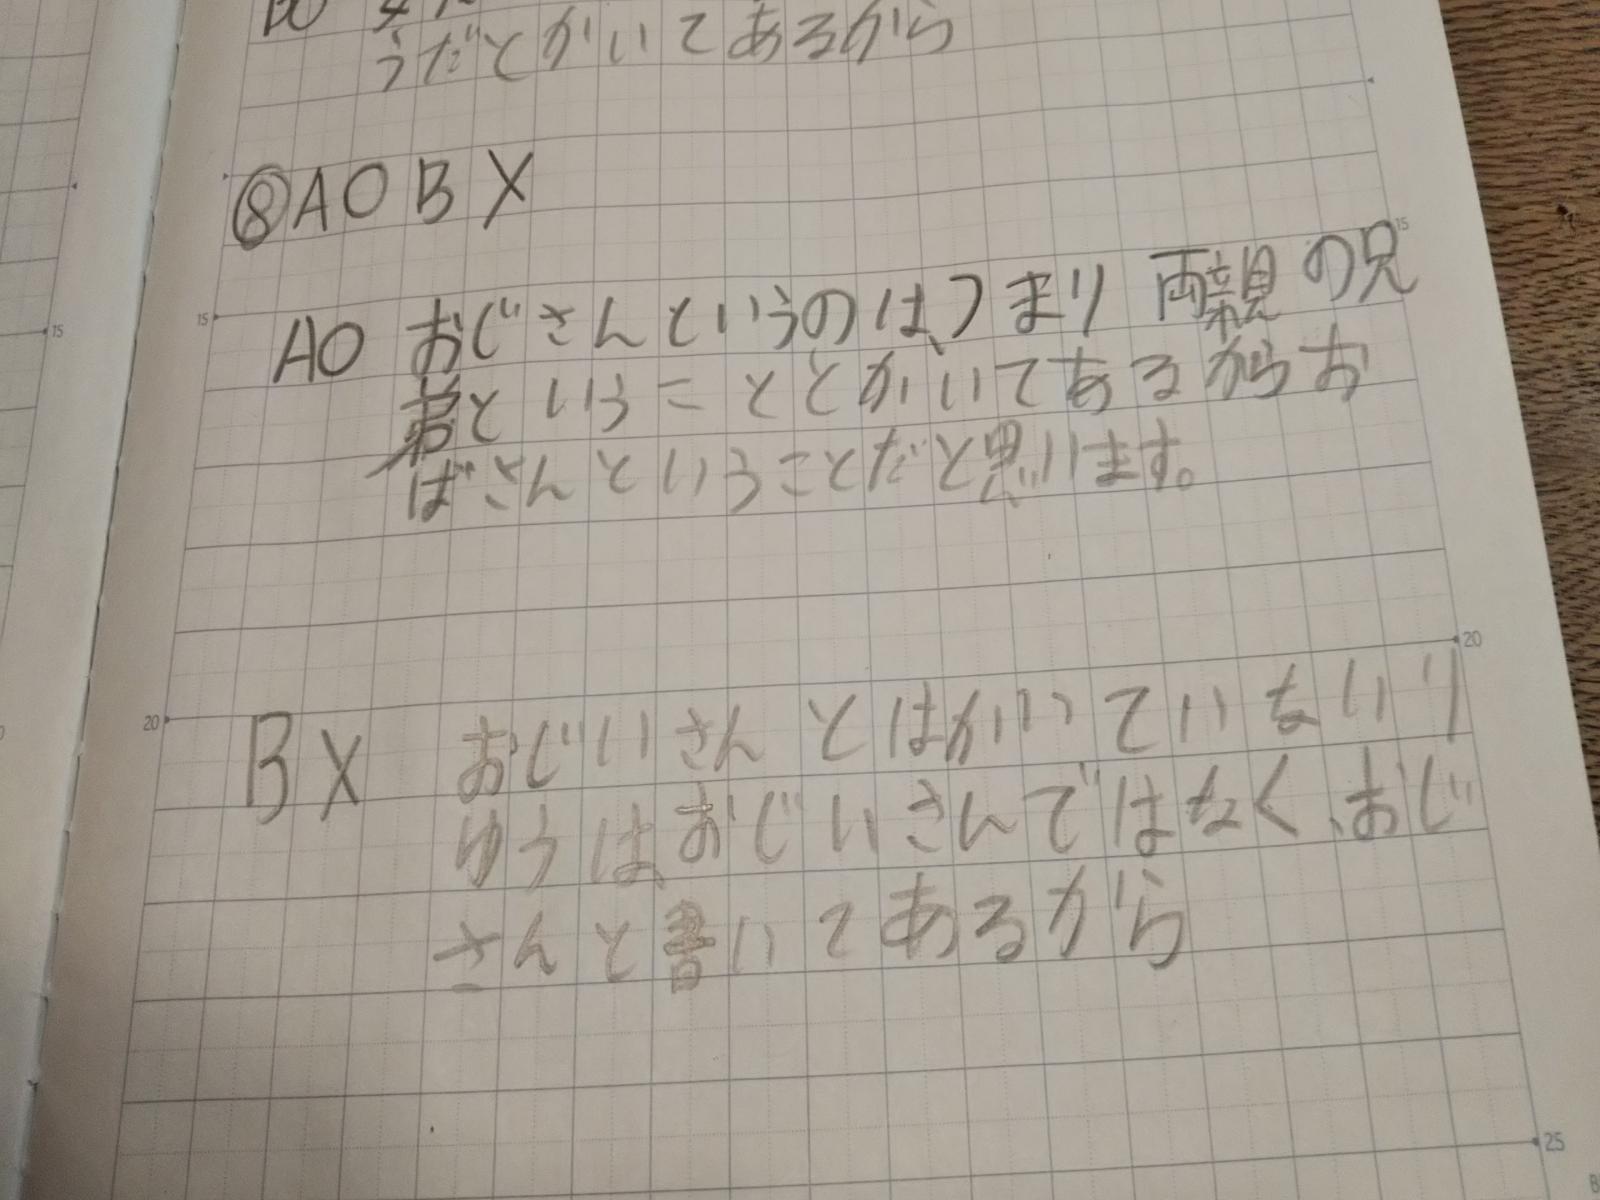 うだとかいてあるから
⑧AOBX
AO おじさんというのは、つまり両親の兄
弟ということとかいてあるからお
ばさんということだと思います。
BX おじいさんとはかいていないり
ゆうは、おじいさんではなく、おじ
さんと書いてあるから
15
15
20
20
25